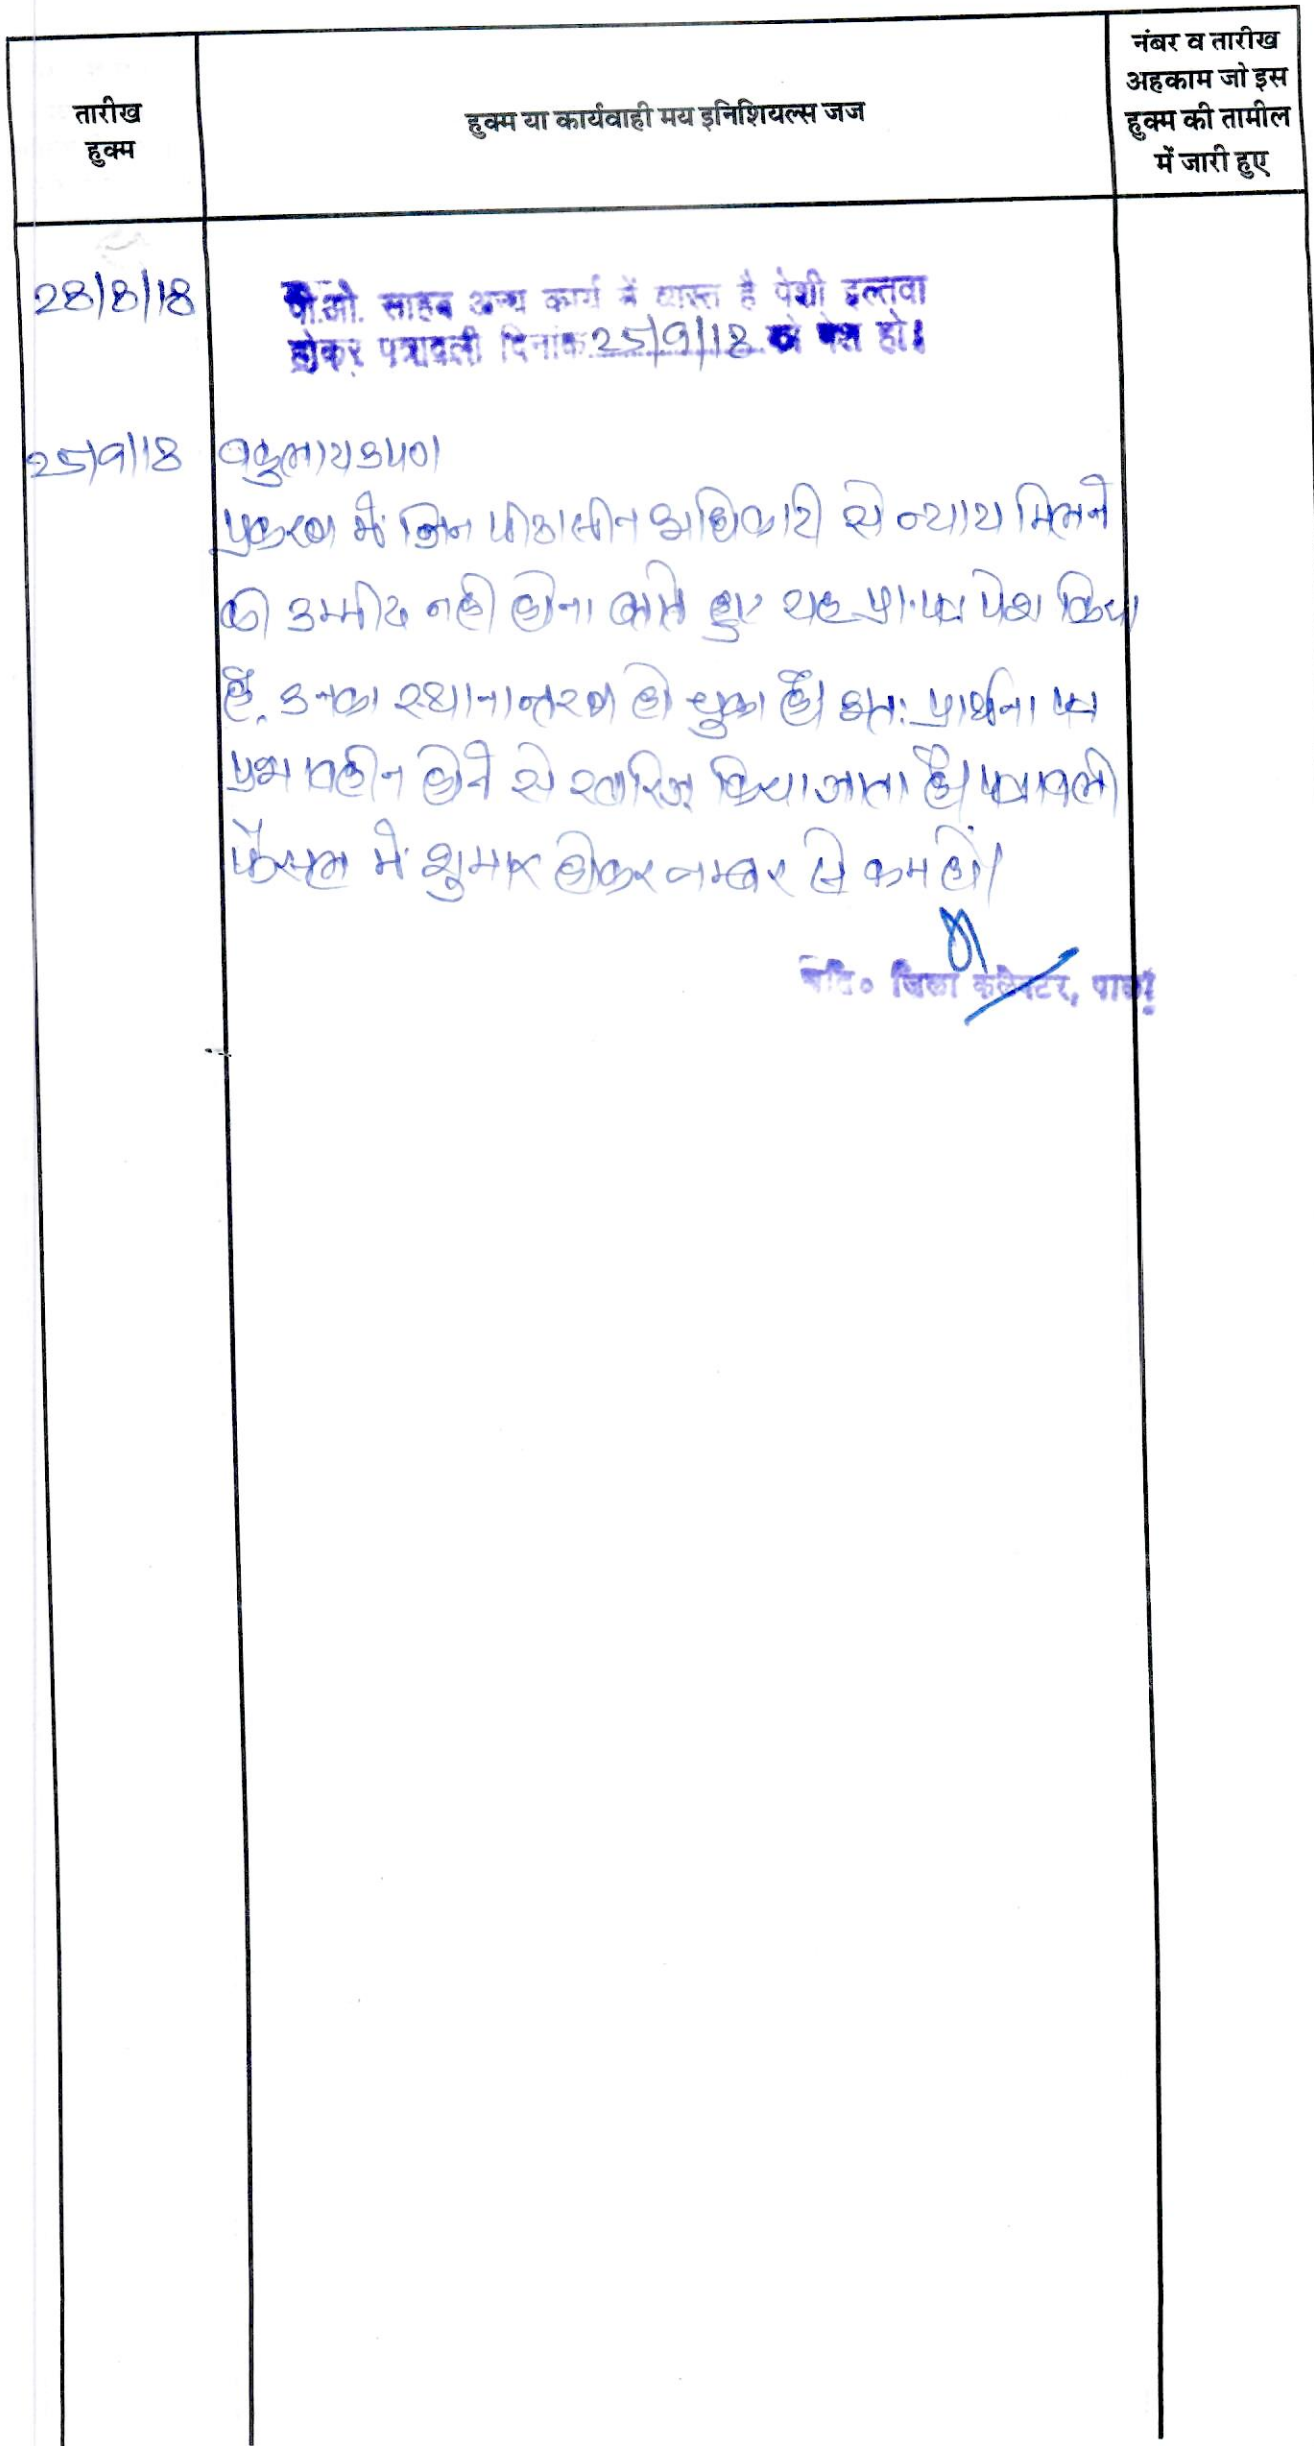 तारीख
हुक्म
हुक्म या कार्यवाही मय इनिशियल्स जज
नंबर व तारीख
अहकाम जो इस
हुक्म की तामील
में जारी हुए
28/8/18
पी.ओ. साहब अन्य कार्य में व्यस्त है पेशी इल्तवा
होकर पत्रावली दिनांक 25/9/18 को पेश हो।
25/9/18
प्रकरण में जिन पीठासीन अधिकारी से न्याय मिलने
की उम्मीद नही होना बताते हुए यह प्रा.पत्र पेश किया
है, उनका स्थानान्तरण हो चुका है। अतः प्रार्थना पत्र
प्रभावहीन होने से खारिज किया जाता है। पत्रावली
फैसल में शुमार होकर नम्बर से कम हो।
अति० जिला कलेक्टर, पाली